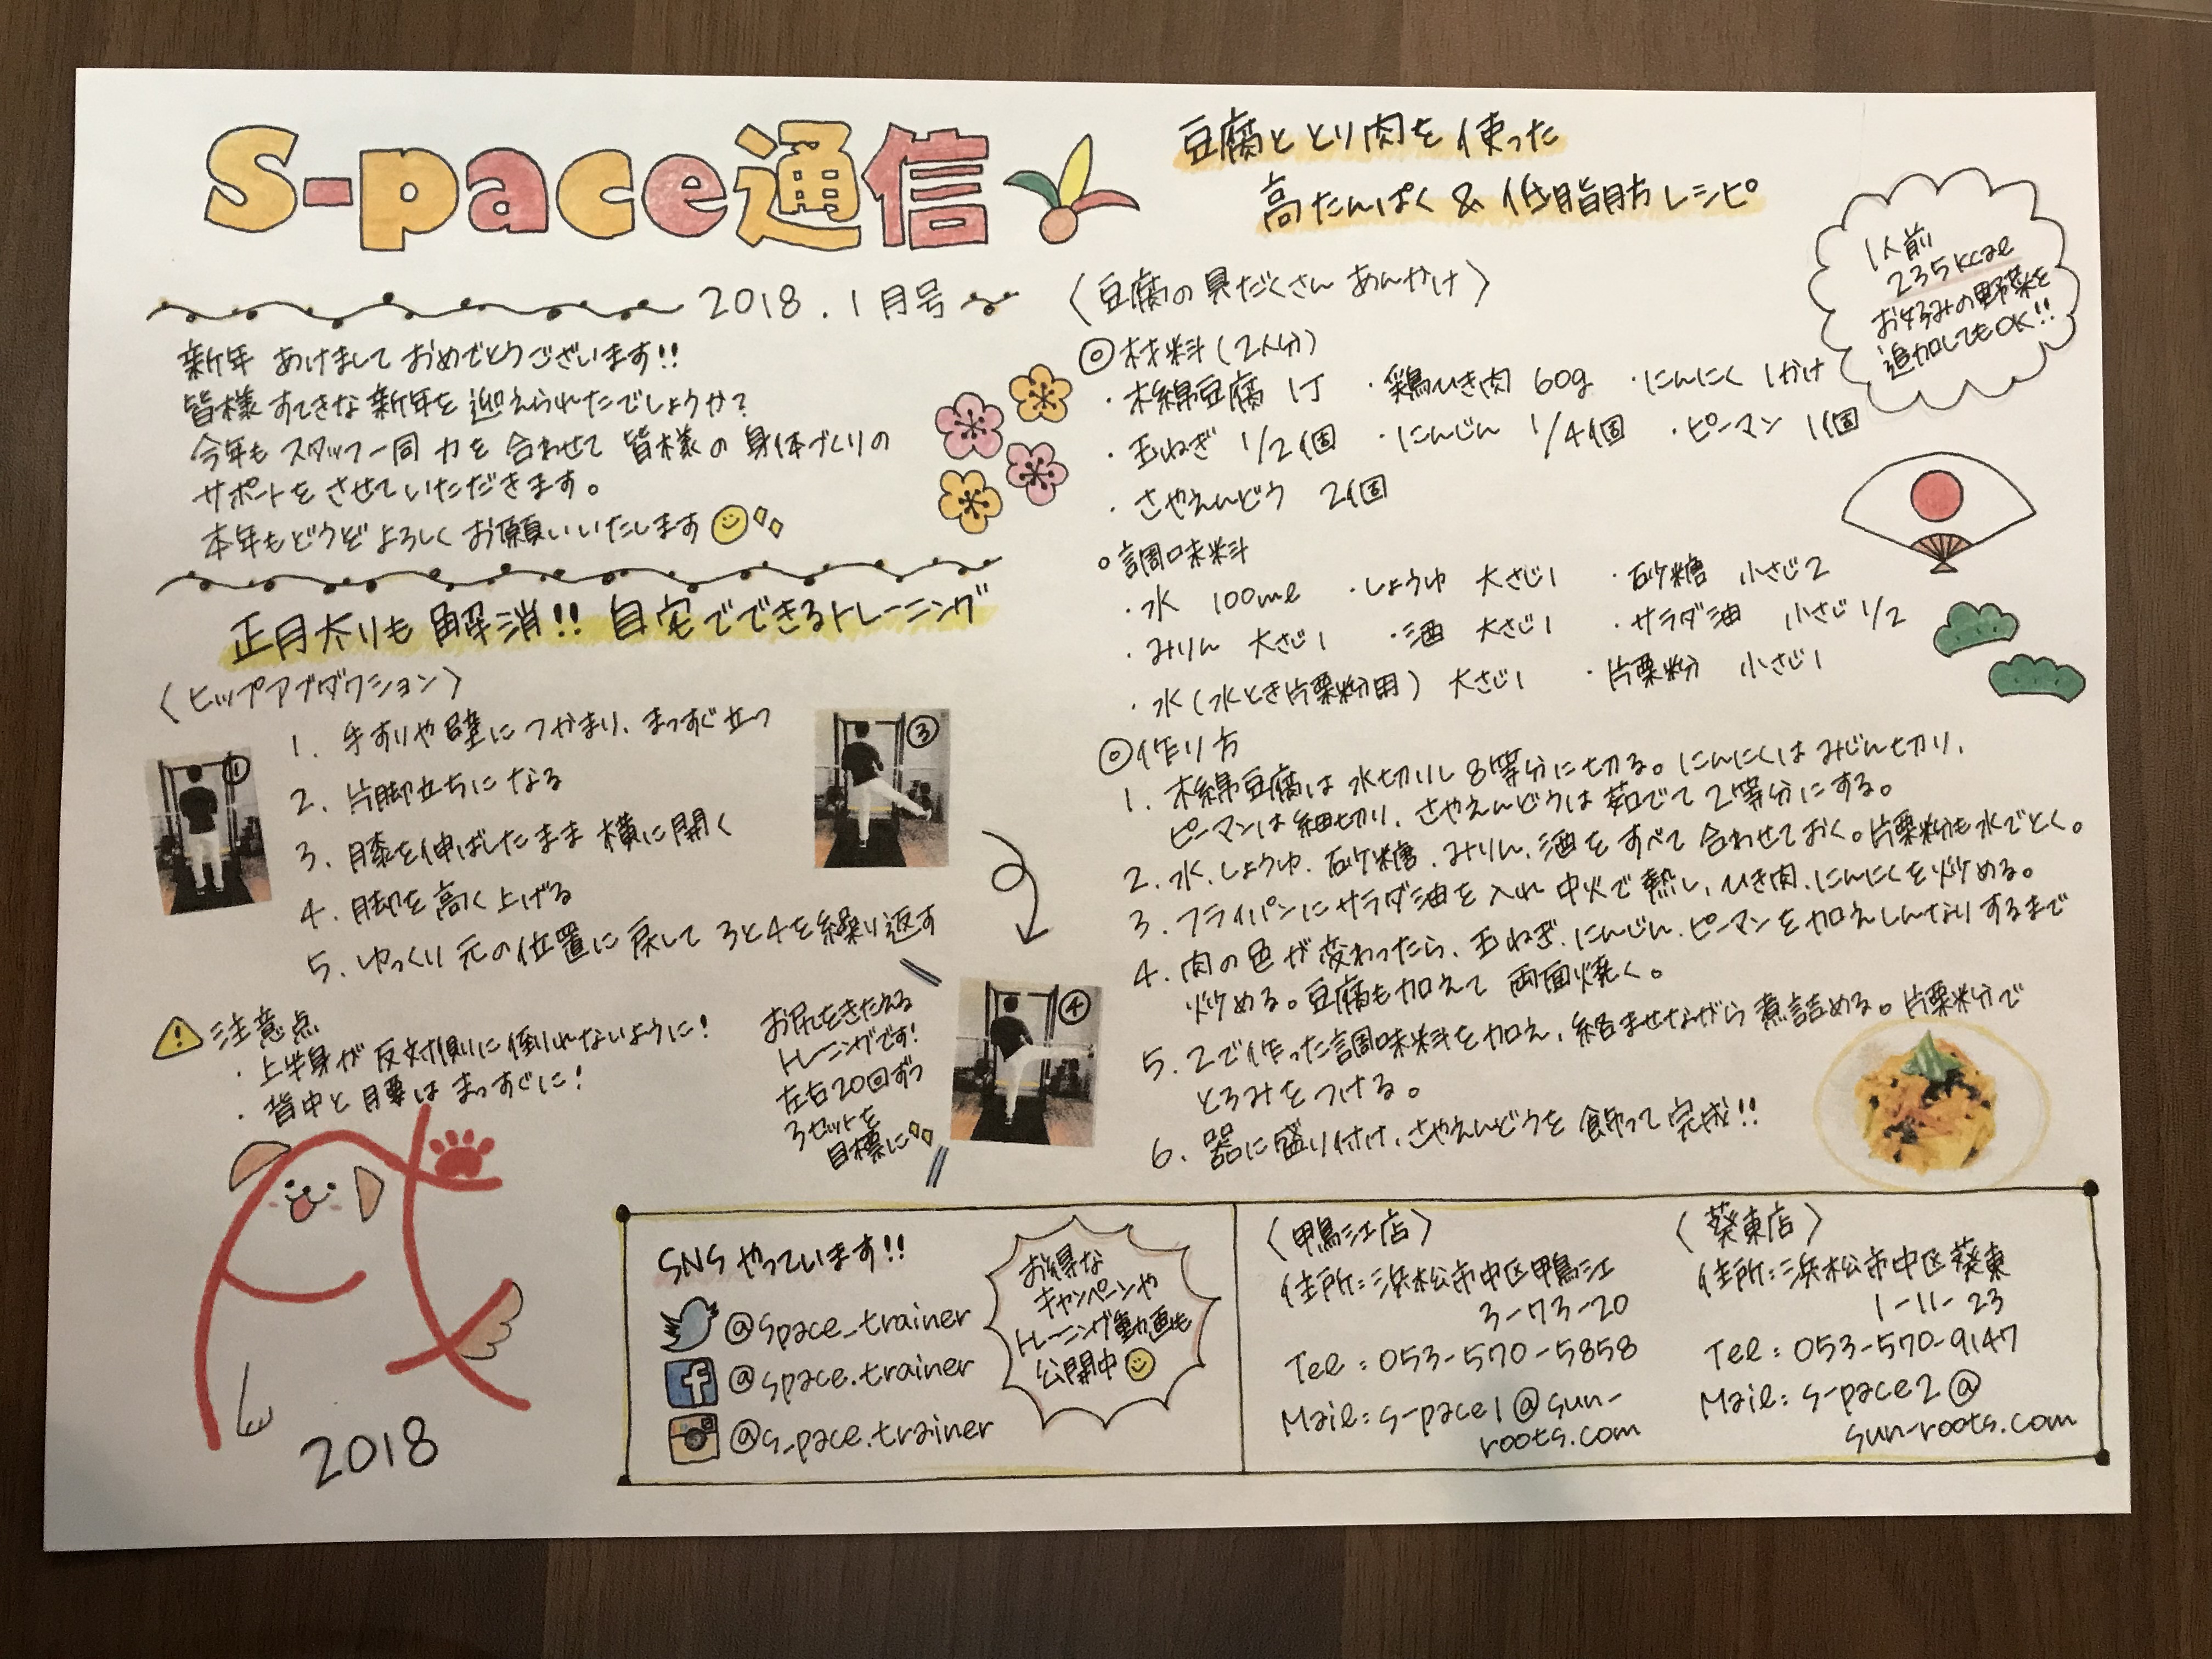 S-pace通信
2018.1月号
新年 あけまして おめでとうございます!!
皆様 すてきな 新年を 迎えられたでしょうか?
今年も スタッフ一同 力を 合わせて 皆様の 身体づくりの
サポートを させていただきます。
本年もどうぞ よろしく お願いいたします
正月太りも 解消!! 自宅でできるトレーニング
〈ヒップアブダクション〉
1. 手すりや壁に つかまり、まっすぐ立つ
2. 片脚立ちに なる
3. 膝を伸ばしたまま 横に開く
4. 脚を高く上げる
5. ゆっくり 元の位置に 戻して 3と4を繰り返す
①
③
④
注意点
・上半身が 反対側に 倒れないように!
・背中と 腰は まっすぐに!
お尻をきたえる
トレーニングです!
左右20回ずつ
3セットを
目標に
2018
豆腐ととり肉を使った
高たんぱく & 低脂肪レシピ
1人前
235kcal
お好みの野菜を
追加してもOK!!
〈豆腐の具だくさん あんかけ〉
◎材料(2人分)
・木綿豆腐 1丁 ・鶏ひき肉 60g ・にんにく 1かけ
・玉ねぎ 1/2個 ・にんじん 1/4個 ・ピーマン 1個
・さやえんどう 2個
○調味料
・水 100ml ・しょうゆ 大さじ1 ・砂糖 小さじ2
・みりん 大さじ1 ・酒 大さじ1 ・サラダ油 小さじ1/2
・水(水とき片栗粉用) 大さじ1 ・片栗粉 小さじ1
◎作り方
1. 木綿豆腐は 水切りし 8等分に切る。にんにくは みじん切り、
ピーマンは 細切り、さやえんどうは 茹でて 2等分にする。
2. 水、しょうゆ、砂糖、みりん、酒を すべて 合わせておく。片栗粉も水でとく。
3. フライパンに サラダ油を 入れ 中火で 熱し、ひき肉、にんにくを 炒める。
4. 肉の色が 変わったら、玉ねぎ、にんじん、ピーマンを加えしんなりするまで
炒める。豆腐も加えて 両面焼く。
5. 2で作った調味料を加え、絡ませながら 煮詰める。片栗粉で
とろみを つける。
6. 器に盛り付け、さやえんどうを 飾って 完成!!
SNS やっています!!
@space_trainer
@space.trainer
@s_pace.trainer
お得な
キャンペーンや
トレーニング動画も
公開中
〈鴨江店〉
住所:浜松市中区鴨江
3-73-20
Tel:053-570-5858
Mail:s-pace1@sun-
roots.com
〈葵東店〉
住所:浜松市中区葵東
1-11-23
Tel:053-570-9147
Mail:s-pace2@
sun-roots.com